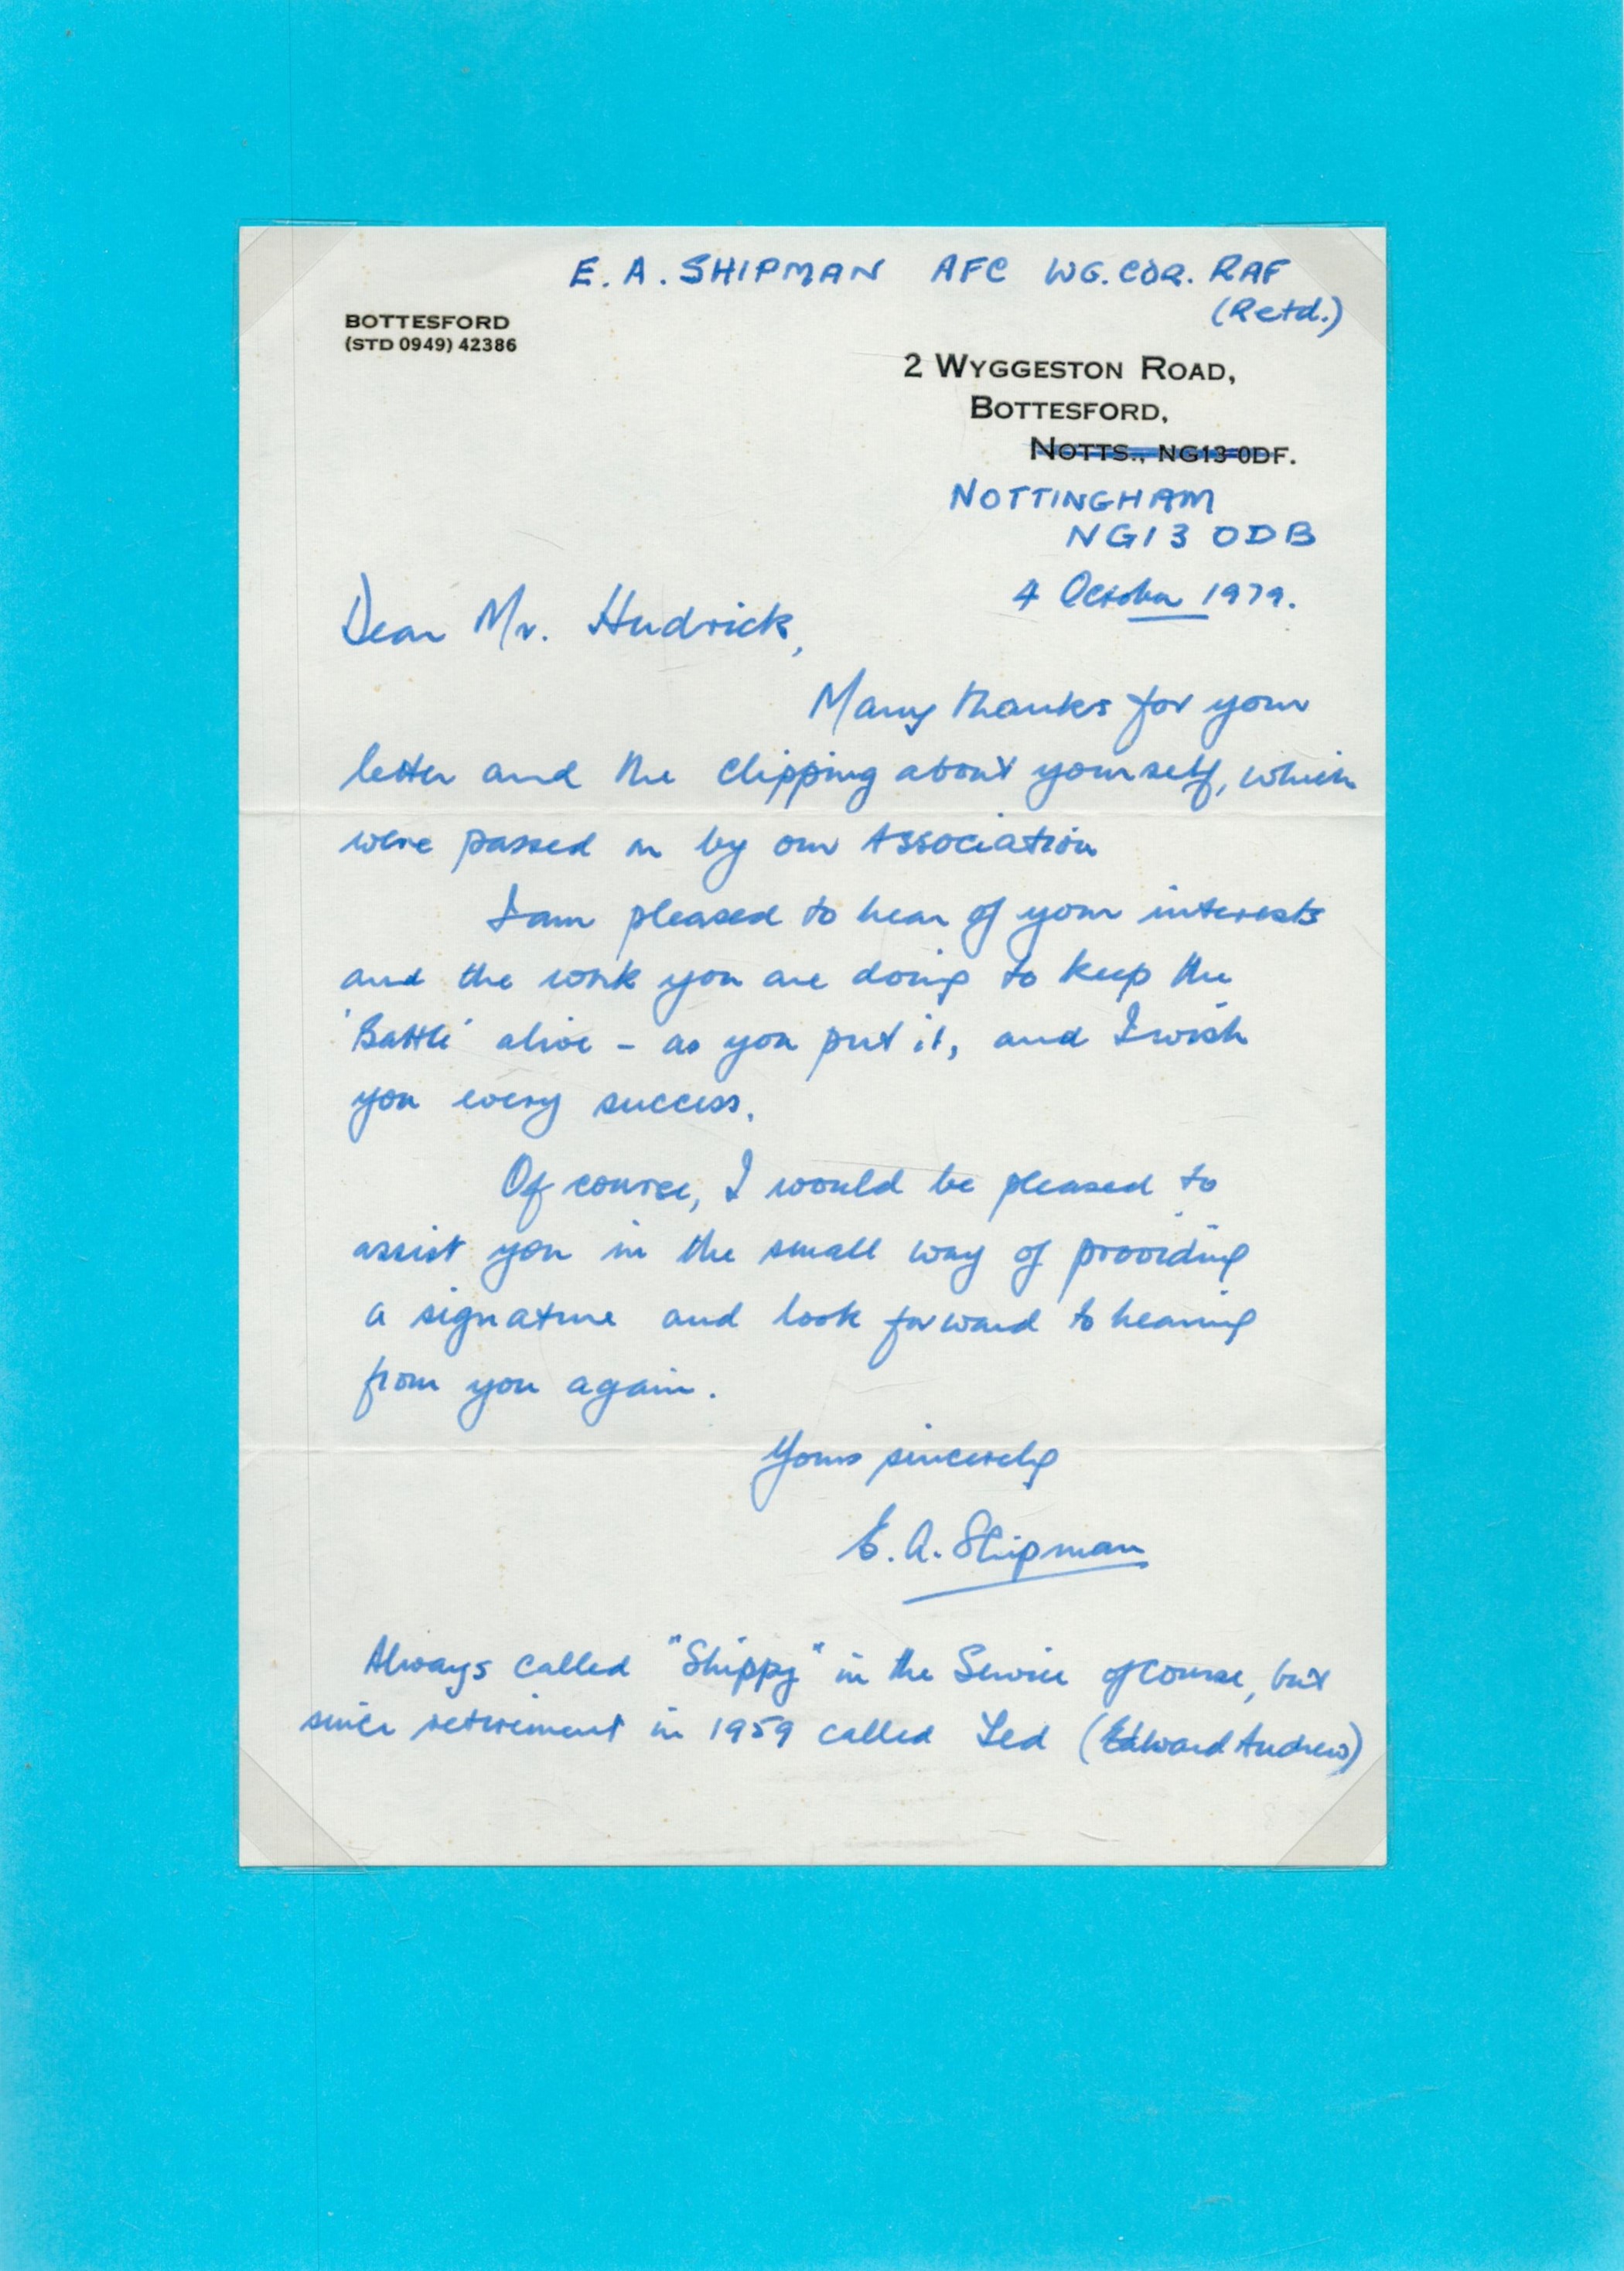 E. A. SHIPMAN AFC WG. CDR. RAF
(Retd.)
BOTTESFORD
(STD 0949) 42386
2 WYGGESTON ROAD,
BOTTESFORD,
NOTTS., NG13 0DF.
NOTTINGHAM
NG13 0DB
4 October 1979.
Dear Mr. Hudrick,
Many thanks for your
letter and the clipping about yourself, which
were passed on by our Association
I am pleased to hear of your interests
and the work you are doing to keep the
'Battle' alive - as you put it, and I wish
you every success.
Of course, I would be pleased to
assist you in the small way of providing
a signature and look forward to hearing
from you again.
Yours sincerely
E. A. Shipman
Always called "Shippy" in the Service of course, but
since retirement in 1959 called Ted (Edward Andrew)